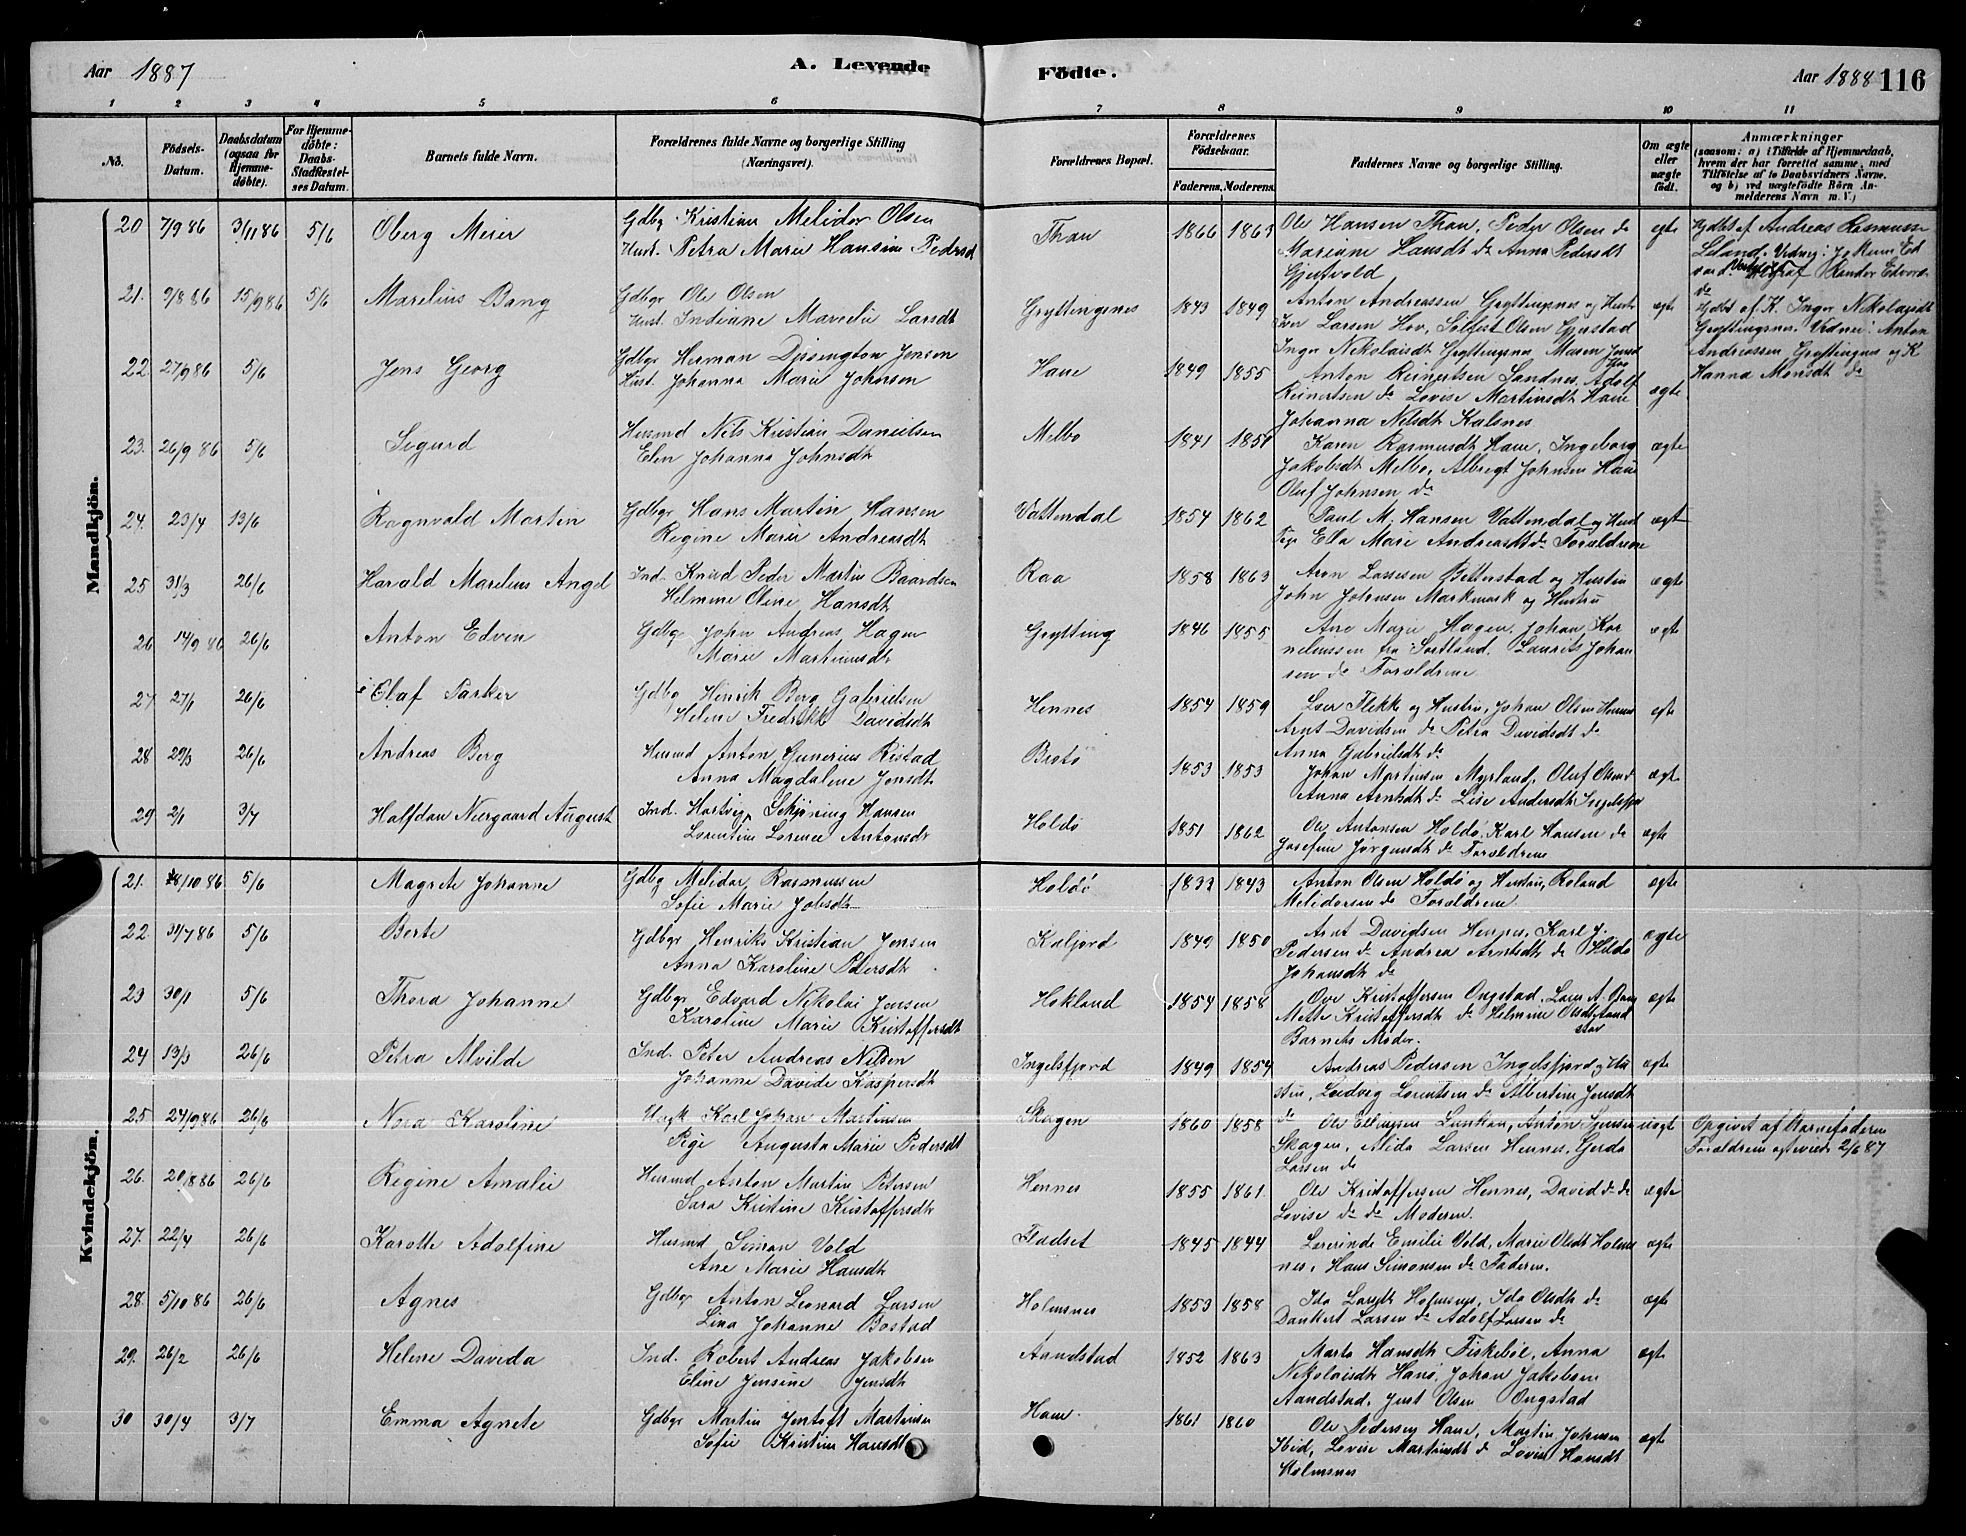 Aar 1887
A. Levende
Födte.
Aar 1888 116
1 2 3 4 5 6 7 8 9 10 11
No.
Födsels-
Datum.
Daabsdatum
(ogsaa for
Hjemme-
döbte).
For Hjemme-
döbte:
Daabs-
Stadfæstel-
ses Datum.
Barnets fulde Navn.
Forældrenes fulde Navne og borgerlige Stilling
(Næringsvei).
Forældrenes Bopæl.
Forældrenes
Födselsaar.
Faderens. Moderens.
Faddernes Navne og borgerlige Stilling.
Om ægte
eller
uægte
födt.
Anmærkninger
(saasom: a) i Tilfælde af Hjemmedaab,
hvem der har forrettet samme, med
Tilföielse af to Daabsvidners Navne,
og b) ved uægtefödte Börn An-
melderens Navn m. V.)
Mandkjön.
20 7/9 86 3/11 86 5/6 Oberg Meier
Gdbg Kristian Melidor Olsen
Hust. Petra Marie Hansine Pedersd
Than 1866 1863
Ole Hansen Than, Peder Olsen do
Mariane Hansdt do Anna Pedersdt
Gjerstvold
egte
Hjdbt af Andreas Rasmusse
21. 9/8 86 15/9 86 5/6 Marelius Bang
Gdbgr Ole Olsen
Hust. Indiane Marelie Larsdt
Gryttingsnes 1843 1849
Anton Andreassen Gryttingsnes og Hustr
Iver Larsen Hov, Solfest Olsen Gjerstad
Inger Nikolaisdt Gryttingsnes Maren Jensd
ægte
Hjdbt af K. Inger Nikolaisdt
Gryttingsnes. Vidner: Anton
Andreassen Gryttingnes og K
Hanna Monsdt do
22. 27/9 86 5/6 Jens Georg
Gdbgr Herman Dysington Jensen
Hust. Johanna Marie Johnsen
Haue 1849 1855
Anton Reinertsen Sandnes, Adolf
Reinertsen do Lovise Martinsdt Haue
Johanna Nilsdt Kalsnes
ægte
23. 26/9 86 5/6 Sigurd
Husmd Nils Kristian Danielsen
Elen Johanna Johnsdt
Melbo 1841 1851
Karen Rasmusdt Haue, Ingeborg
Jakobsdt Melbo, Albregt Johnsen Haue
Oluf Johnsen do
ægte
24. 23/4 13/6 Ragnvald Martin
Gdbgr Hans Martin Hansen
Regine Marie Andreasdt
Vattendal 1854 1862
Paul M. Hansen Vattendal og Hust
Pige Ella Marie Andreasdt do Forældrene
ægte
25 31/3 26/6 Harald Marelius Angel
Ind. Knud Peder Martin Baardsen
Helmine Oline Hansdt
Raa 1858 1863
Aron Lassesen Betterstad og Hustru
John Johnsen Markmark og Hustru
ægte
26 14/9 86 26/6 Anton Edvin
Gdbgr John Andreas Hagen
Marie Martinusdt
Grytting 1846 1855
Ane Marie Hagen, Johan Kor
neliussen fra Sortland. Laurits Johan
sen do Forældrene
ægte
27 27/1 26/6 Olaf Parker
Gdbg Hinrik Berg Gabrielsen
Helene Fredrikke Davidsdt
Hennes 1854 1859
Iver Flekke og Hustru, Johan Olsen Hennes
Arnt Davidsen do Petra Davidsdt do
Anna Gabrielsdt do
egte
28 29/3 26/6 Andreas Berg
Husmd Anton Gunerius Ristad
Anna Magdalene Jensdt
Brotø 1853 1853
Johan Martinsen Myrland, Oluf Olsen do
Anna Arntsdt do Lise Andersdt Ingelsfjor
ægte
29 2/1 3/7 Halfdan Neergaard August
Ind. Hartvig Schjøning Hansen
Lorentine Lorence Antonsdt
Holdø 1851 1862
Ole Antonsen Holdø, Karl Hansen do
Josefine Jørgensdt do Forældrene
ægte
Kvindekjön.
21. 8/10 86 5/6 Magrete Johanne
Gdbg Melidor Rasmussen
Sofie Marie Jobsdt
Holdö 1832 1843
Anton Olsen Holdö og Hustru, Roland
Melidorsen do Forældrene
ægte
22 31/7 86 5/6 Berte
Gdbgr Henriks Kristian Jensen
Anna Karoline Pedersdt
Kaljord 1849 1850
Arnt Davidsen Hennes, Karl J.
Pedersen do Andrea Arntsdt do Hilda
Johansdt do
ægte
23 30/1 5/6 Thora Johanne
Gdbgr Edvard Nikolai Jensen
Karoline Marie Kristoffersdt
Hokland 1854 1858
Ove Kristoffersen Ongstad, Lars A.
Mette Kristoffersdt do Helmine Olsdt Aand
stad
Barnets Moder.
ægte
24 13/3 26/6 Petra Alvilde
Ind. Peter Andreas Nilsen
Johanne Davide Kaspersdt
Ingelsfjord 1849 1854
Andreas Pedersen Ingelsfjord og Hu
stru, Ludvig Lorentsen do Albertine Jensdt
do
ægte
25 24/9 86 26/6 Nora Karoline
Ungk Karl Johan Martinsen
Pige Augusta Marie Pedersdt
Skagen 1860 1858
Ole Ellingsen Lunkan, Anton Iversen
Skagen, Alida Larsen Hennes, Gerda
Larsen do
uegte
Opgivet af Barnefaderen
Forældrene egteviede 2/6 87
26. 20/8 86 26/6 Regine Amalie
Husmd Anton Martin Petersen
Sara Kristine Kristoffersdt
Hennes 1855 1861
Ole Kristoffersen Hennes, David do do
Lovise do do Moderen.
ægte
27. 22/4 26/6 Karotte Adolfine
Husmd Simon Vold
Ane Marie Hansdt
Fladset 1845 1844
Lærerinde Emilie Vold, Marie Olsdt Holms
nes, Hans Simonsen do Faderen.
ægte
28. 5/10 86 26/6 Agnes
Gdbgr Anton Leonard Larsen
Lina Johanne Bostad
Holmsnes 1853 1858
Ida Larsdt Holmsnes, Ida Olsdt do
Dankert Larsen do Adolf Larsen do
ægte
29. 26/2 26/6 Helene Davida
Ind. Robert Andreas Jakobsen
Eline Jensine Jensdt
Aandstad 1852 1863
Marta Hansdt Fiskebøl, Anna
Nikolaisdt Hanö, Johan Jakobsen
Aandstad, Just Olsen Ongstad
ægte
30 30/4 3/7 Emma Agnete
Gdbgr Martin Jentoft Martinsen
Sofie Kristine Hansdt
Haue 1861 1860
Ole Pedersen Haue, Martin Johnsen
Ibid, Lovise Martinsdt do Lovise Hansdt
Holmsnes
ægte